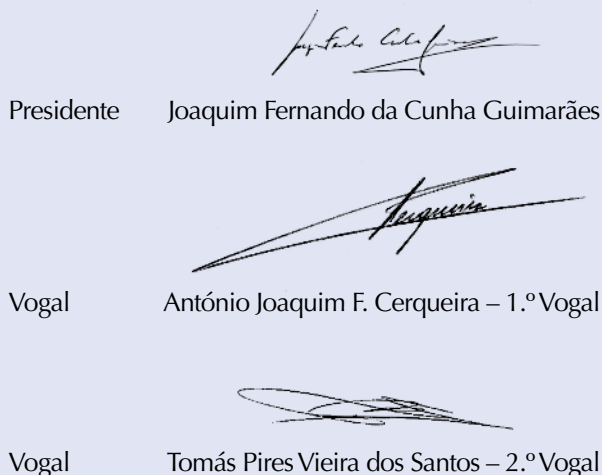 Presidente Joaquim Fernando da Cunha Guimarães
Vogal António Joaquim F. Cerqueira – 1.º Vogal
Vogal Tomás Pires Vieira dos Santos – 2.º Vogal